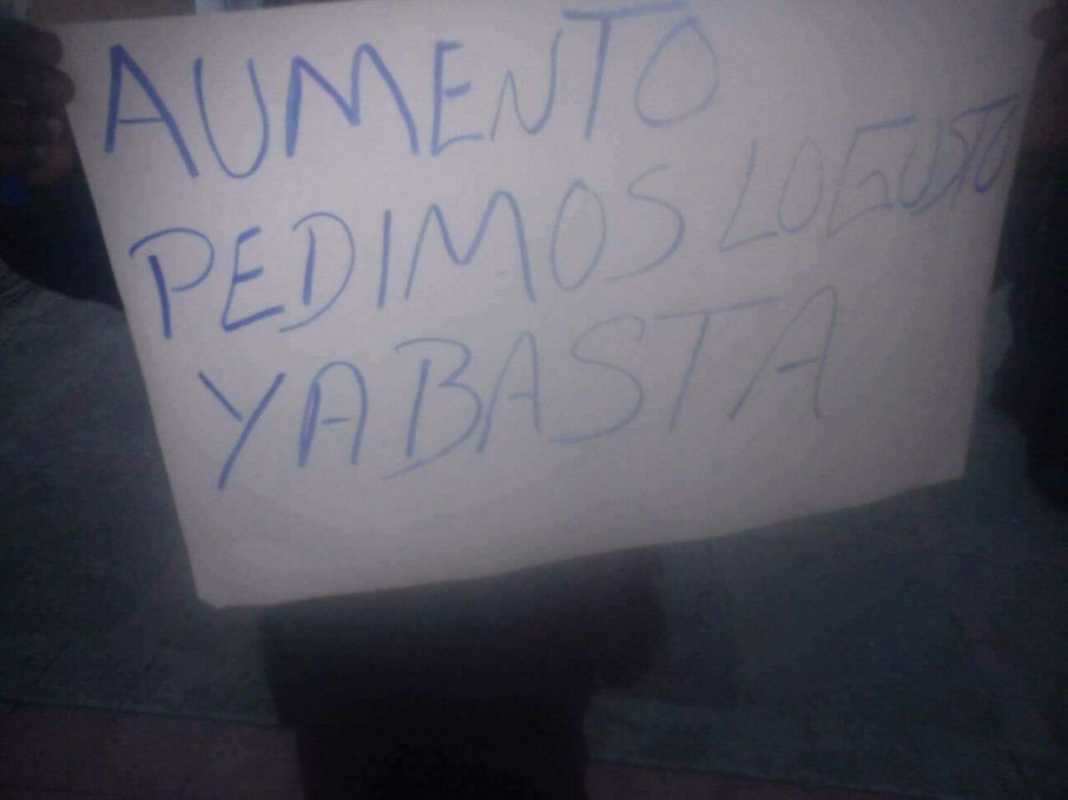 AUMENTO
PEDIMOS LO GUSTO
YA BASTA